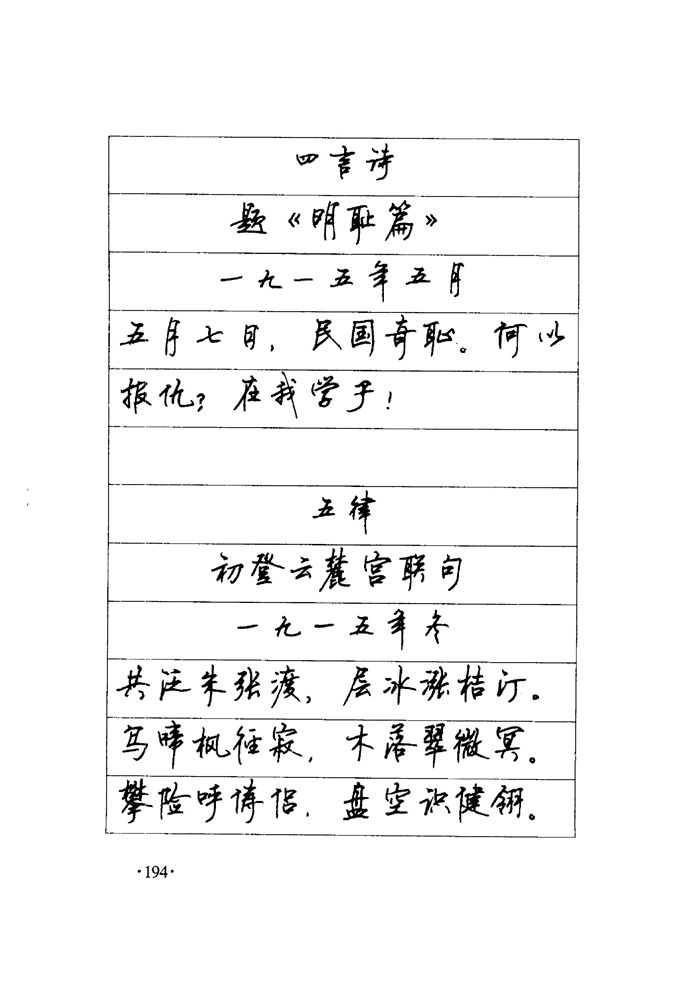 四言诗
题《明耻篇》
一九一五年五月
五月七日，民国奇耻。何以
报仇？在我学子！
五律
初登云麓宫联句
一九一五年冬
共泛朱张渡，层冰涨桔汀。
鸟啼枫径寂，木落翠微冥。
攀险呼俦侣，盘空识健翎。
·194·